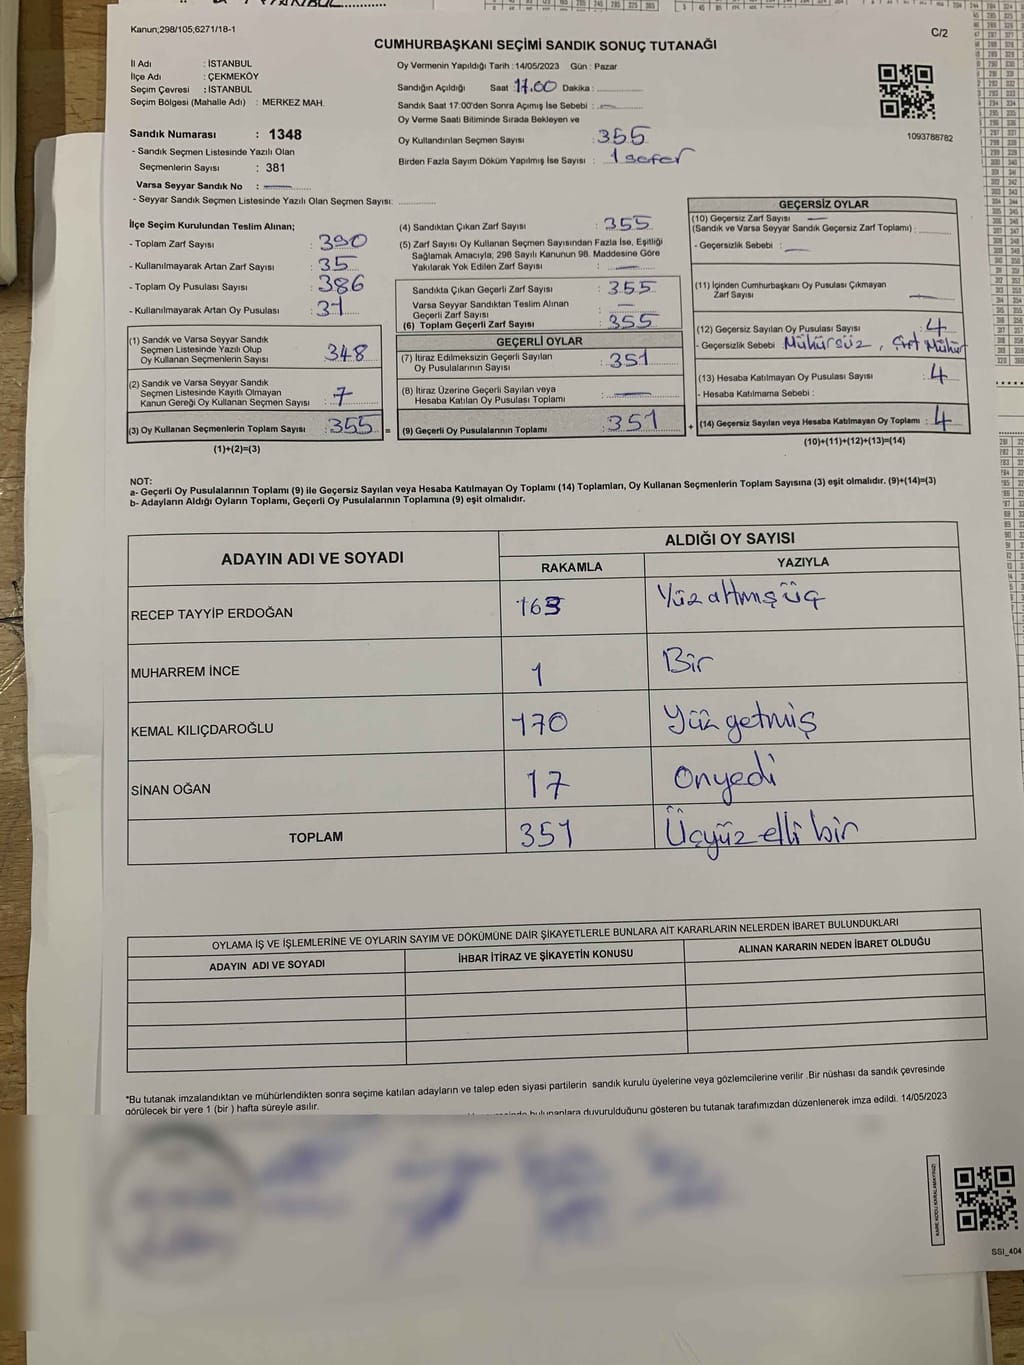 Kanun;298/105,6271/18-1
C/2
CUMHURBAŞKANI SEÇİMİ SANDIK SONUÇ TUTANAĞI
İl Adı : İSTANBUL
İlçe Adı : ÇEKMEKÖY
Seçim Çevresi : İSTANBUL
Seçim Bölgesi (Mahalle Adı) : MERKEZ MAH.
Oy Vermenin Yapıldığı Tarih : 14/05/2023 Gün : Pazar
Sandığın Açıldığı Saat 17.00 Dakika :
Sandık Saat 17:00'den Sonra Açımış İse Sebebi : —
Oy Verme Saati Bitiminde Sırada Bekleyen ve
Oy Kullandırılan Seçmen Sayısı : 355
Birden Fazla Sayım Döküm Yapılmış İse Sayısı : 1 sefer
1093786782
Sandık Numarası : 1348
- Sandık Seçmen Listesinde Yazılı Olan
Seçmenlerin Sayısı : 381
Varsa Seyyar Sandık No : —
- Seyyar Sandık Seçmen Listesinde Yazılı Olan Seçmen Sayısı:
İlçe Seçim Kurulundan Teslim Alınan;
- Toplam Zarf Sayısı : 390
- Kullanılmayarak Artan Zarf Sayısı : 35
- Toplam Oy Pusulası Sayısı : 386
- Kullanılmayarak Artan Oy Pusulası : 31
(1) Sandık ve Varsa Seyyar Sandık
Seçmen Listesinde Yazılı Olup
Oy Kullanan Seçmenlerin Sayısı : 348
(2) Sandık ve Varsa Seyyar Sandık
Seçmen Listesinde Kayıtlı Olmayan
Kanun Gereği Oy Kullanan Seçmen Sayısı : 7
(3) Oy Kullanan Seçmenlerin Toplam Sayısı : 355 =
(1)+(2)=(3)
(4) Sandıktan Çıkan Zarf Sayısı : 355
(5) Zarf Sayısı Oy Kullanan Seçmen Sayısından Fazla İse, Eşitliği
Sağlamak Amacıyla; 298 Sayılı Kanunun 98. Maddesine Göre
Yakılarak Yok Edilen Zarf Sayısı : —
Sandıkta Çıkan Geçerli Zarf Sayısı : 355
Varsa Seyyar Sandıktan Teslim Alınan
Geçerli Zarf Sayısı : —
(6) Toplam Geçerli Zarf Sayısı : 355
GEÇERLİ OYLAR
(7) İtiraz Edilmeksizin Geçerli Sayılan
Oy Pusulalarının Sayısı : 351
(8) İtiraz Üzerine Geçerli Sayılan veya
Hesaba Katılan Oy Pusulası Toplamı : —
(9) Geçerli Oy Pusulalarının Toplamı : 351 +
GEÇERSİZ OYLAR
(10) Geçersiz Zarf Sayısı —
(Sandık ve Varsa Seyyar Sandık Geçersiz Zarf Toplamı) :
- Geçersizlik Sebebi : —
(11) İçinden Cumhurbaşkanı Oy Pusulası Çıkmayan
Zarf Sayısı —
(12) Geçersiz Sayılan Oy Pusulası Sayısı : 4
- Geçersizlik Sebebi Mühürsüz, Çift Mühür
(13) Hesaba Katılmayan Oy Pusulası Sayısı : 4
- Hesaba Katılmama Sebebi :
(14) Geçersiz Sayılan veya Hesaba Katılmayan Oy Toplamı : 4
(10)+(11)+(12)+(13)=(14)
NOT:
a- Geçerli Oy Pusulalarının Toplamı (9) ile Geçersiz Sayılan veya Hesaba Katılmayan Oy Toplamı (14) Toplamları, Oy Kullanan Seçmenlerin Toplam Sayısına (3) eşit olmalıdır. (9)+(14)=(3)
b- Adayların Aldığı Oyların Toplamı, Geçerli Oy Pusulalarının Toplamına (9) eşit olmalıdır.
ADAYIN ADI VE SOYADI
ALDIĞI OY SAYISI
RAKAMLA YAZIYLA
RECEP TAYYİP ERDOĞAN 163 Yüzaltmışüç
MUHARREM İNCE 1 Bir
KEMAL KILIÇDAROĞLU 170 Yüzyetmiş
SİNAN OĞAN 17 Onyedi
TOPLAM 351 Üçyüz elli bir
OYLAMA İŞ VE İŞLEMLERİNE VE OYLARIN SAYIM VE DÖKÜMÜNE DAİR ŞİKAYETLERLE BUNLARA AİT KARARLARIN NELERDEN İBARET BULUNDUKLARI
ADAYIN ADI VE SOYADI İHBAR İTİRAZ VE ŞİKAYETİN KONUSU ALINAN KARARIN NEDEN İBARET OLDUĞU
*Bu tutanak imzalandıktan ve mühürlendikten sonra seçime katılan adayların ve talep eden siyasi partilerin sandık kurulu üyelerine veya gözlemcilerine verilir .Bir nüshası da sandık çevresinde
görülecek bir yere 1 (bir ) hafta süreyle asılır.
bulunanlara duyurulduğunu gösteren bu tutanak tarafımızdan düzenlenerek imza edildi. 14/05/2023
SSI_404